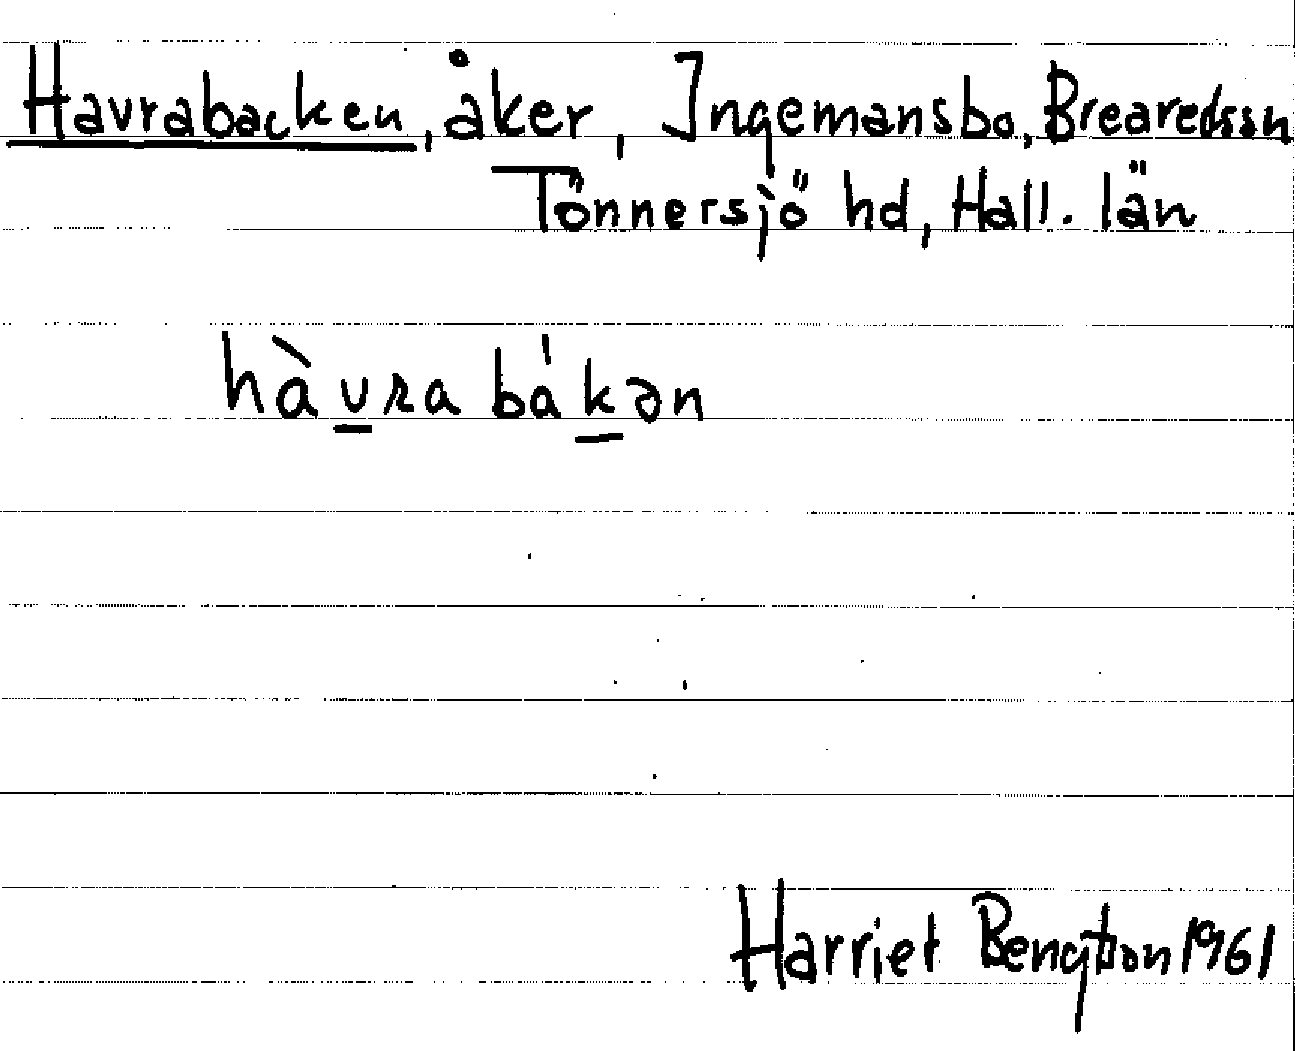 Havrabacken, åker, Ingemansbo, Brearedssn
Tönnersjö hd, Hall. län
hàv̲ra bák̲ən
Harriet Bengtson 1961